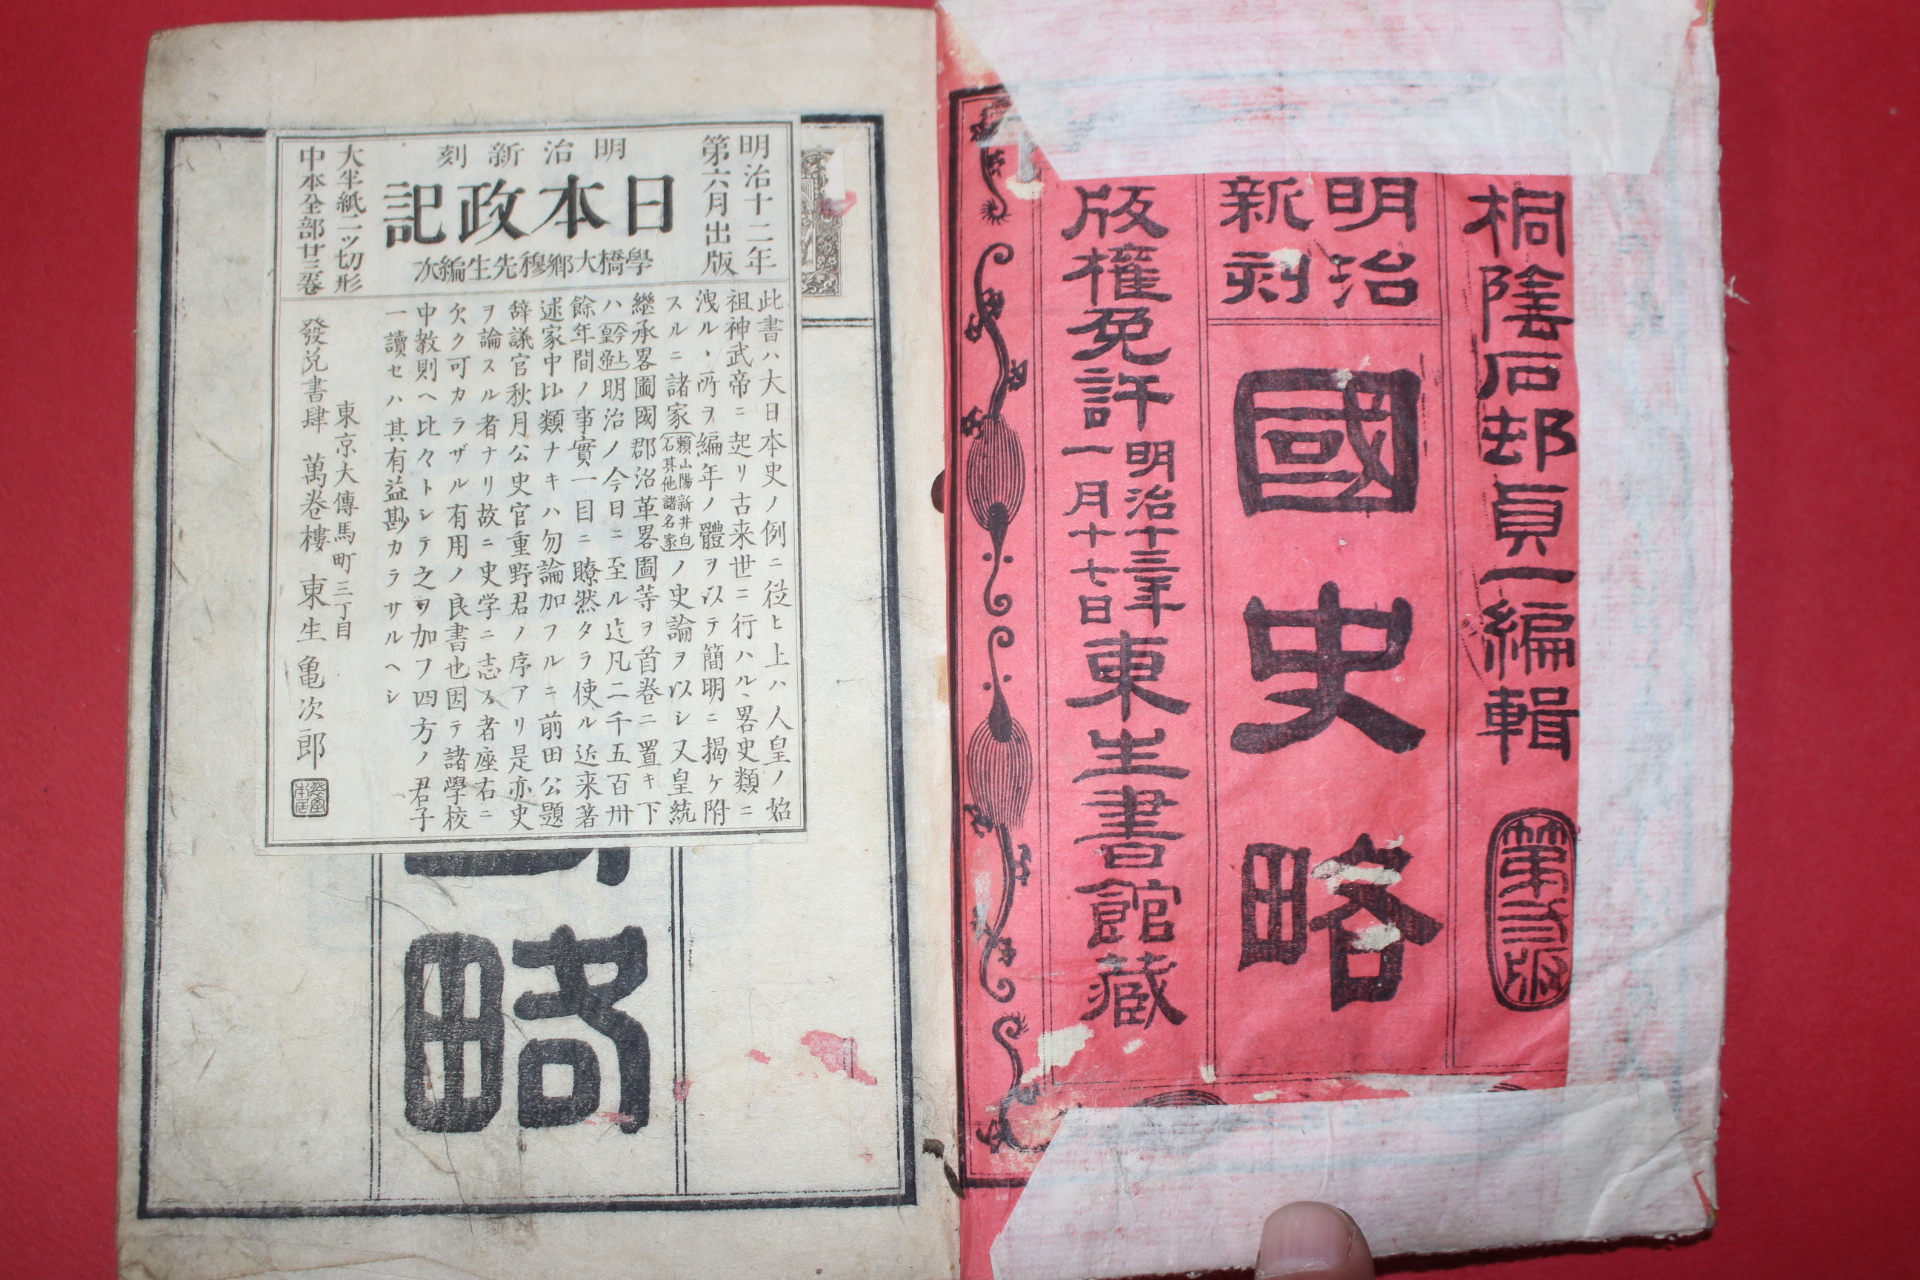 桐陰石邨貞一編輯
第二版
明治
新刻
國史略
版權免許
明治十三年
一月十七日
東生書館藏
明治十二年
第六月出版
明治新刻
日本政記
學橋大鄉穆先生編次
大半紙二ッ切形
中本全部廿三卷
此書ハ大日本史ノ例ニ從ヒ上ハ人皇ノ始
祖神武帝ニ起リ古来世ニ行ハルヽ畧史類ニ
洩ルヽ所ヲ編年ノ體ヲ以テ簡明ニ揭ケ附
スルニ諸家
賴山陽新井白
石其他諸名家
ノ史論ヲ以シ又皇統
繼承畧圖國郡沿革畧圖等ヲ首卷ニ置キ下
ハ
明治ノ今日ニ至ル迄凡二千五百卅
餘年間ノ事實一目ニ瞭然タラ使ル近来著
述家中比類ナキハ勿論加フルニ前田公題
辞議官秋月公史官重野君ノ序アリ是亦史
ヲ論スル者ナリ故ニ史学ニ志ス者座右ニ
欠ク可カラザル有用ノ良書也因テ諸學校
中教則ヘ比々トシテ之ヲ加フ四方ノ君子
一讀セハ其有益尠カラサルヘシ
東京大傳馬町三丁目
發兌書肆 萬卷樓 東生亀次郎
略